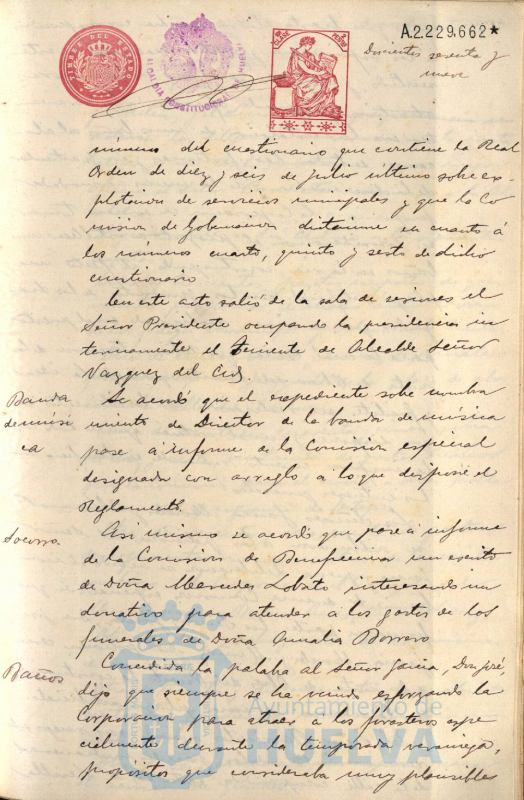 A.2.229.662*
TIMBRE DEL ESTADO
ALCALDIA CONSTITUCIONAL DE HUELVA
Doscientos sesenta y
nueve
número del cuestionario que contiene la Real
Orden de diez y seis de Julio último sobre ex-
plotacion de servicios municipales y que la Co
mision de Gobernacion dictamine en cuanto á
los números cuarto, quinto y sesto de dicho
cuestionario
En este acto salió de la sala de sesiones el
Señor Presidente ocupando la presidencia in
terinamente el Teniente de Alcalde Señor
Vazquez del Cid.
Banda
de músi
ca
Se acordó que el expediente sobre nombra
miento de Director de la banda de música
pase á informe de la Comision especial
designada con arreglo á lo que dispone el
Reglamento.
Socorro
Asi mismo se acordó que pase á informe
de la Comision de Beneficencia un escrito
de Doña Mercedes Lobato interesando un
donativo para atender á los gastos de los
funerales de Doña Amalia Borrero
Baños
Concedida la palabra al Señor Garcia, Don José,
dijo que siempre se ha venido esforzando la
Corporacion para atraer á los forasteros espe
cialmente durante la temporada veraniega,
propósitos que consideraba muy plausibles
Ayuntamiento de
HUELVA